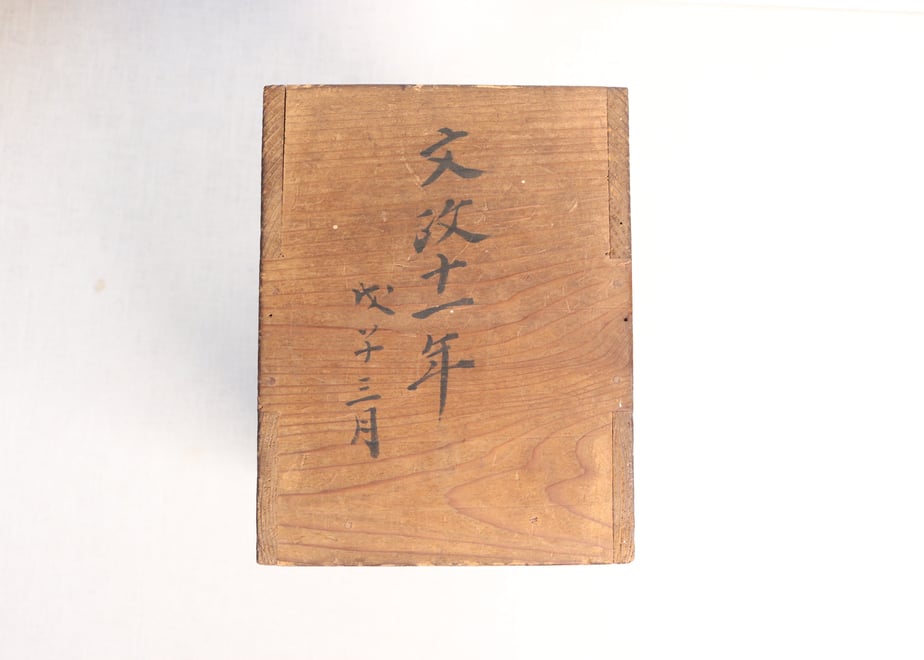 文政十一年
戊子三月